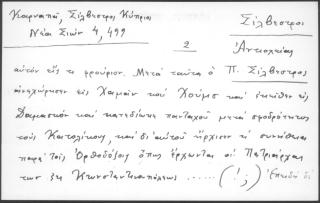 Καρναπᾶ, Σίλβεστρος Κύπριος
Σίλβεστρος
Νέα Σιών 4, 499
2
Ἀντιοχείας
αὐτόν εἰς τό φρούριον. Μετά ταῦτα ὁ Π. Σίλβεστρος
ἀνεχώρησεν εἰς Χαμᾶν καί Χούμς καί ἐκεῖθεν εἰς
Δαμασκόν καί κατεδίωκε πανταχοῦ μετά σφοδρότητος
τούς Κατολίκους, καί δι' αὐτοῦ ἤρχισεν ἡ συνήθεια
παρά τοῖς Ὀρθοδόξοις ὅπως ἔρχωνται οἱ Πατριάρχαι
των ἐκ Κωνσταντινουπόλεως ..... (!;) Ἐπειδή δέ